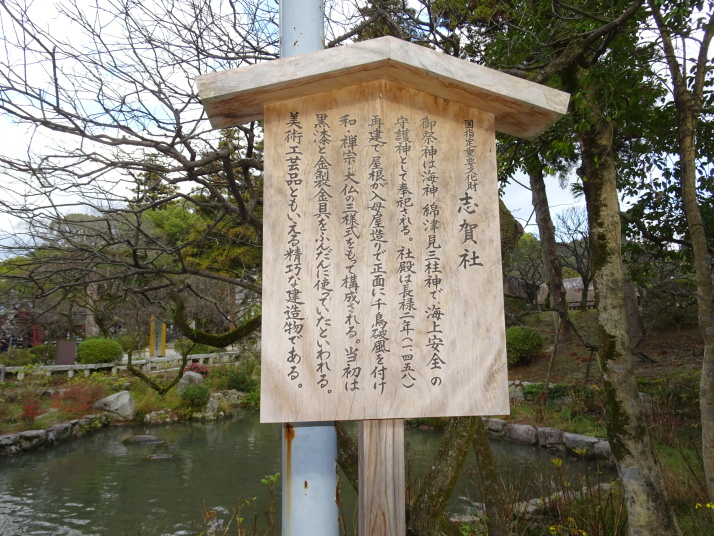 国指定重要文化財
志賀社
御祭神は海神 綿津見三柱神で、海上安全の
守護神として奉祀される。社殿は長禄二年(一四五八)
再建で、屋根が入母屋造で正面に千鳥破風を付け
和・禅宗・大仏の三様式をもて構成される。当初は
黒漆と金製金具をふんだんに使っていたといわれる。
美術工芸品ともいえる精巧な建造物である。